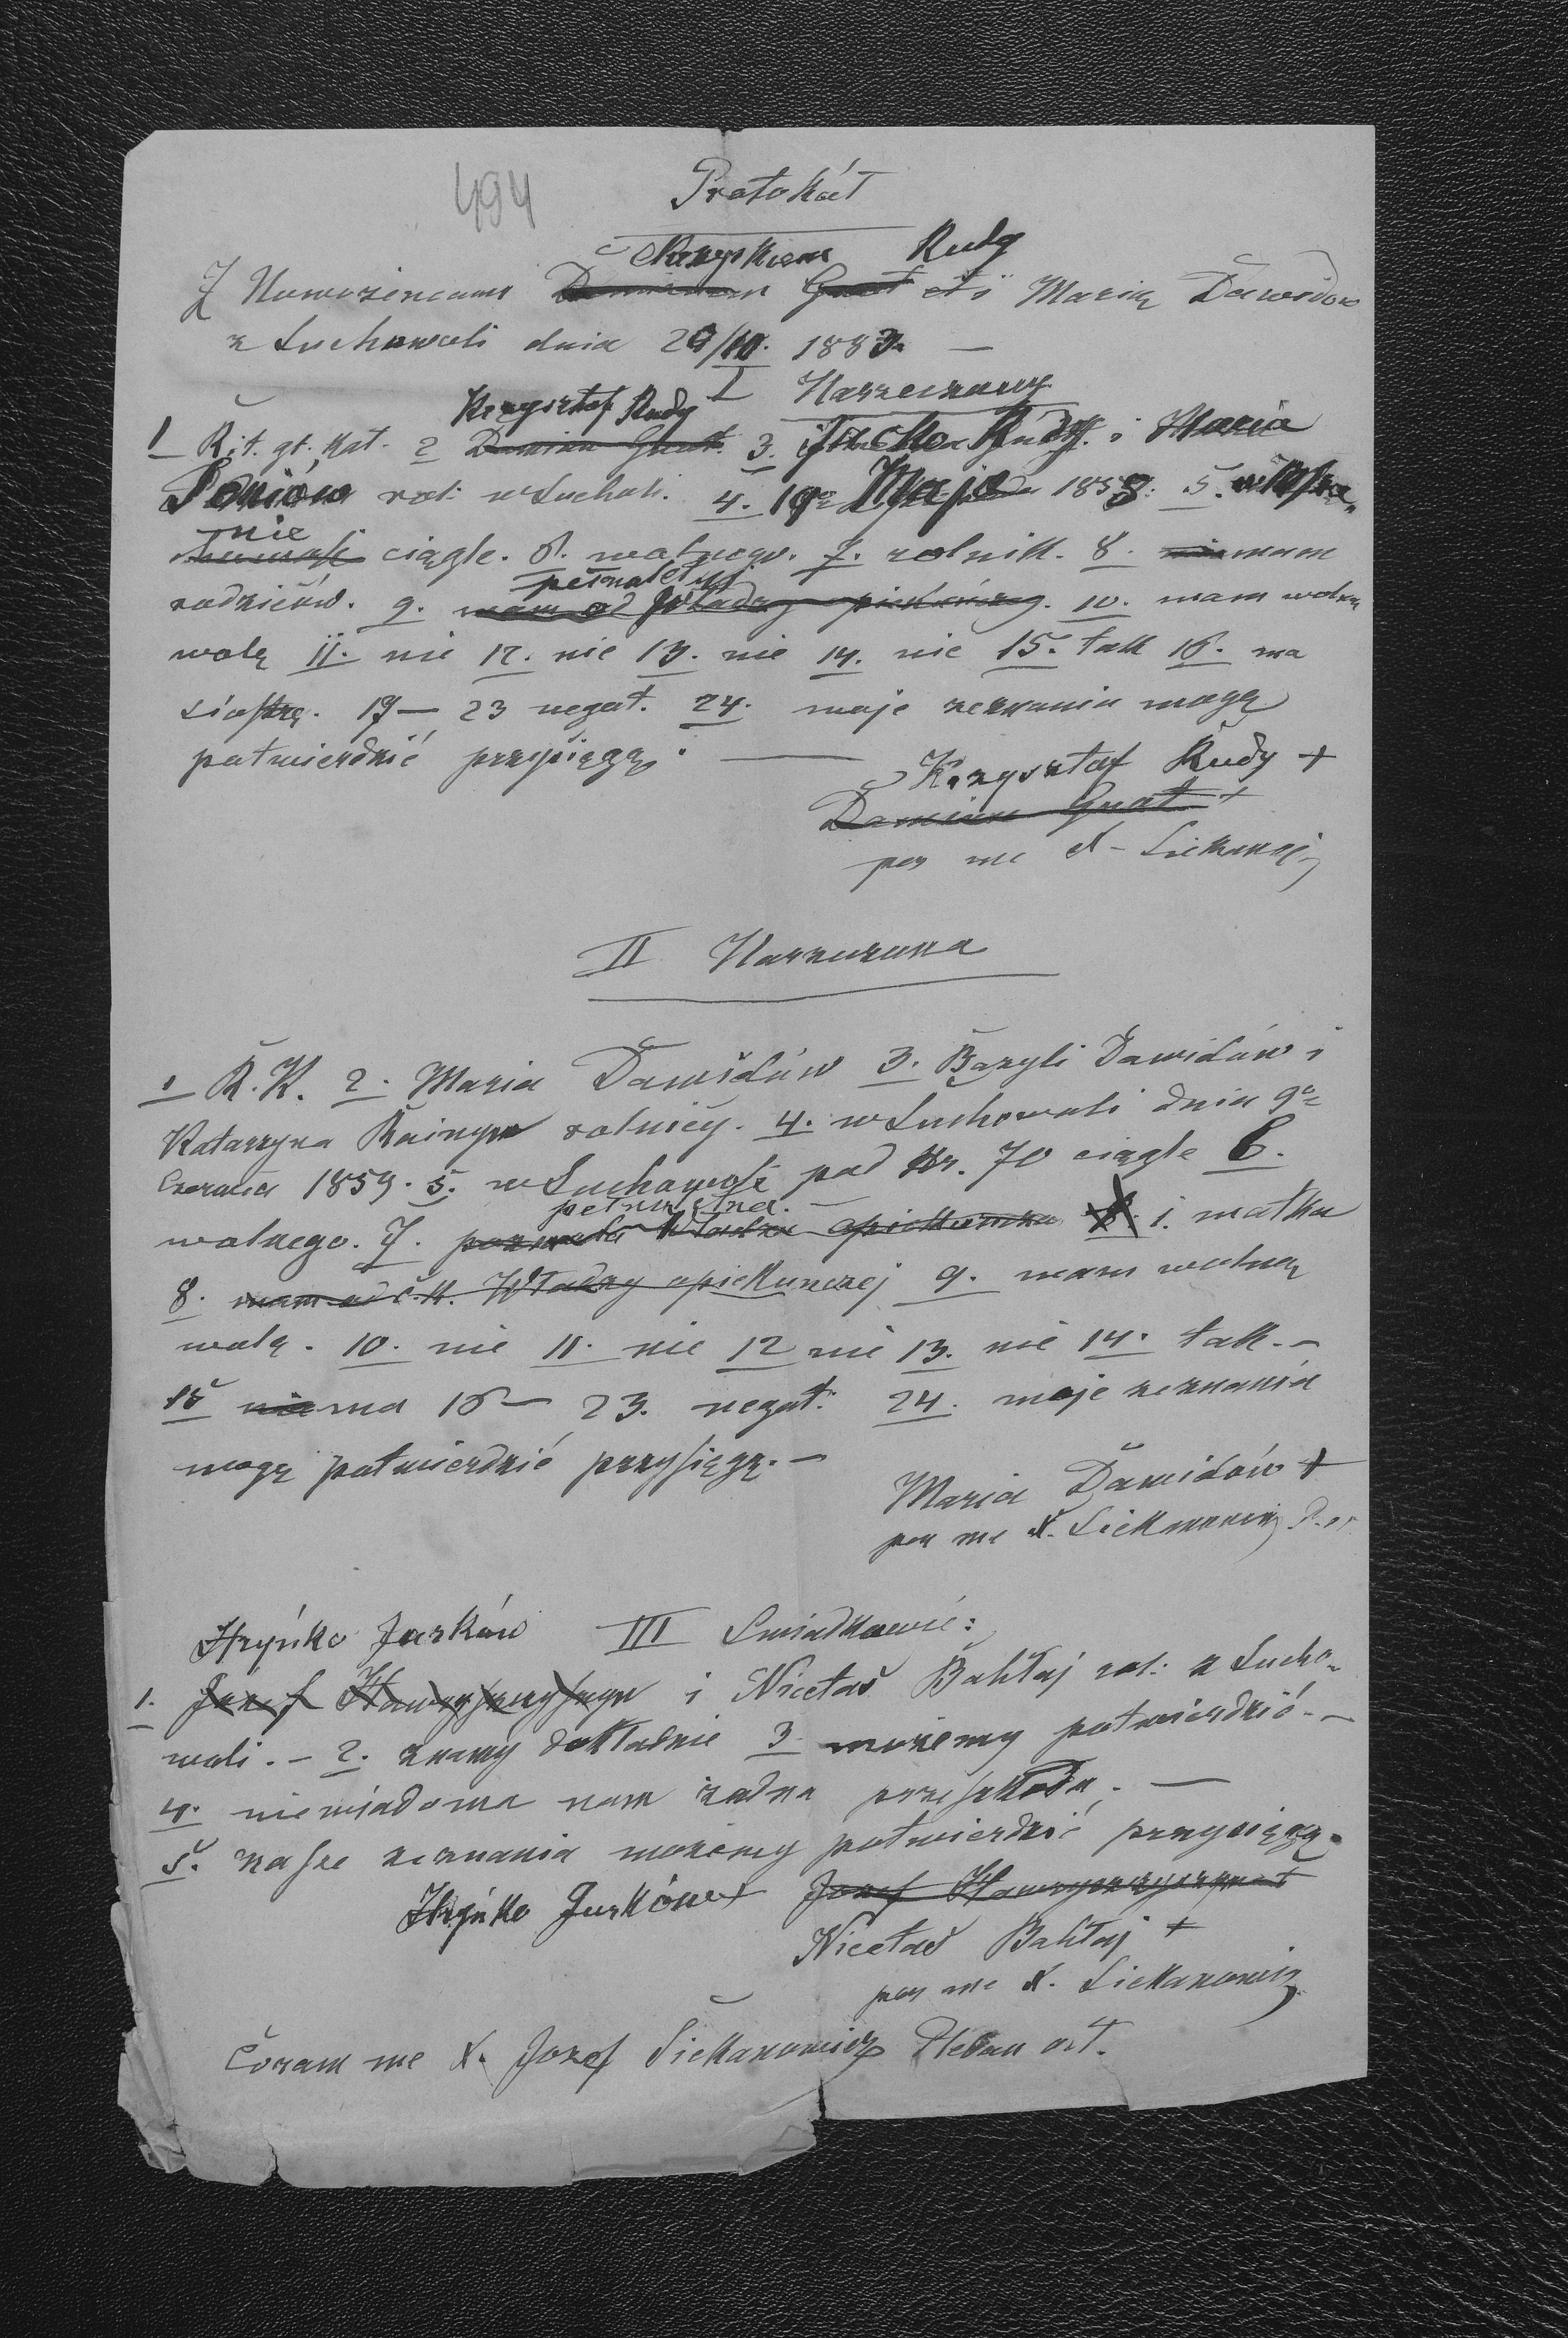 494
Protokół
Krzysztom Rudy
Z Nowożeńcami Damianem Gnat a i Marią Dawidów
z Suchowoli dnia 29/10. 1883. —
I Narzeczony
Krzysztof Rudy
1 Rit. gt. kat. 2 Damian Gnat. 3. Jacko Rudy. i Maria
Poniów rol: w Sucholi. 4. 19go Maja 1858: 5.
nie
ciągle. 6. wolnego. 7. rolnik. 8. nie mam
pełnoletny
rodziców. 9. mam od Władzy 10. mam wolną
wolę 11. nie 12. nie 13. nie 14. nie 15. tak 16. ma
siostrę. 17 — 23 negat. 24. moje zeznania mogę
potwierdzić przysięgą. —
Krzysztof Rudy +
Damian Gnat +
per me X. Siekanowicz
II Narzeczona
1 R. K. 2. Maria Dawidów 3. Bazyli Dawidów i
Katarzyna rolnicy. 4. w Suchowoli dnia 9go
Czerwca 1859. 5. w Suchowoli pod Nr. 70 ciągle 6.
pełnoletna. —
wolnego. 7. pozwala Władza opiekuńcza 8. i. matka
8. mam od c.k. Władzy opiekunczej 9. mam wolną
wolę. 10. nie 11. nie 12 nie 13. nie 14. tak. —
15 niema 16 — 23. negat: 24. moje zeznania
mogę potwierdzić przysięgą. —
Maria Dawidów +
per me X. Siekanowicz
Hryńko Jurków III Swiadkowie:
1. Józef Hawryszczyszyn i Nicetas Bahłaj rol: z Sucho-
woli. — 2. znamy dokładnie 3 możemy potwierdzić. —
4. niewiadoma nam żadna przeszkoda. —
5. nasze zeznania możemy potwierdzić przysięgą.
Hryńko Jurków + Józef Hawryszczyszyn +
Nicetas Bahłaj +
per me X. Siekanowicz
Coram me X. Jozef Siekanowicz Pleban ort.